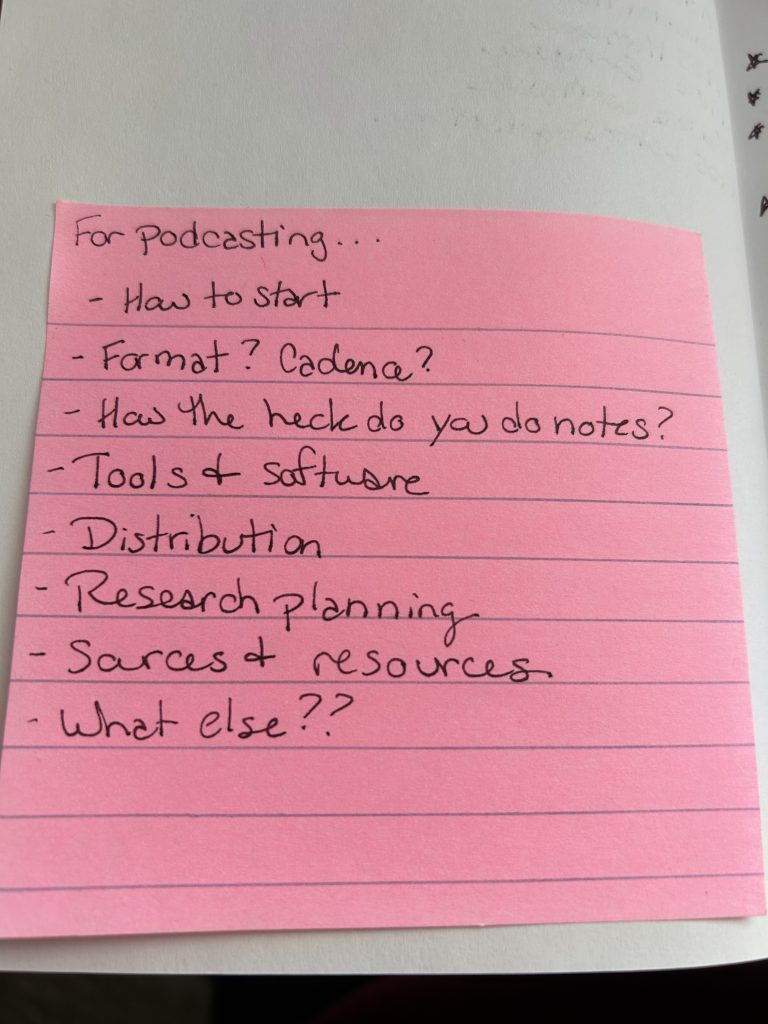 For podcasting...
- How to start
- Format? Cadence?
- How the heck do you do notes?
- Tools & software
- Distribution
- Research planning
- Sources & resources
- What else??